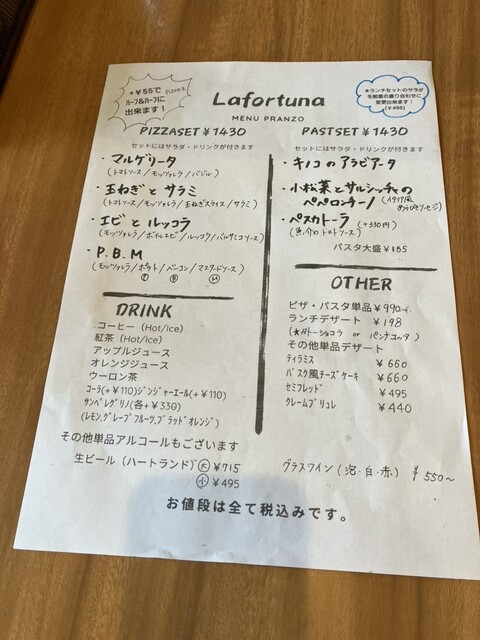 +¥55で ピッツァは
ハーフ&ハーフに
出来ます！
Lafortuna
MENU PRANZO
★ランチセットのサラダ
を前菜の盛り合わせに
変更出来ます！
(¥495)
PIZZASET ¥1430
セットにはサラダ・ドリンクが付きます
・マルゲリータ
(トマトソース/モッツァレラ/バジル)
・玉ねぎとサラミ
(トマトソース/モッツァレラ/玉ねぎスライス/サラミ)
・エビとルッコラ
(モッツァレラ/ボイルエビ/ルッコラ/バルサミコソース)
・P.B.M
(モッツァレラ/ポテト/ベーコン/マスタードソース)
P B M
DRINK
コーヒー（Hot/Ice）
紅茶（Hot/Ice）
アップルジュース
オレンジジュース
ウーロン茶
コーラ(+¥110)ジンジャーエール(+¥110)
サンペレグリノ(各+¥330)
(レモン,グレープフルーツ,ブラッドオレンジ)
その他単品アルコールもございます
生ビール（ハートランド）大 ¥715
小 ¥495
PASTSET ¥1430
セットにはサラダ・ドリンクが付きます
・キノコのアラビアータ
・小松菜とサルシッチャの
ペペロンチーノ
・ペスカトーラ (+330円)
(魚介のトマトソース)
パスタ大盛 ¥165
OTHER
ピザ・パスタ単品 ¥990~
ランチデザート ¥198
(★ガトーショコラ or パンナコッタ)
その他単品デザート
ティラミス ¥660
バスク風チーズケーキ ¥660
セミフレッド ¥495
クレームブリュレ ¥440
グラスワイン（泡・白・赤） ¥550~
お値段は全て税込みです。